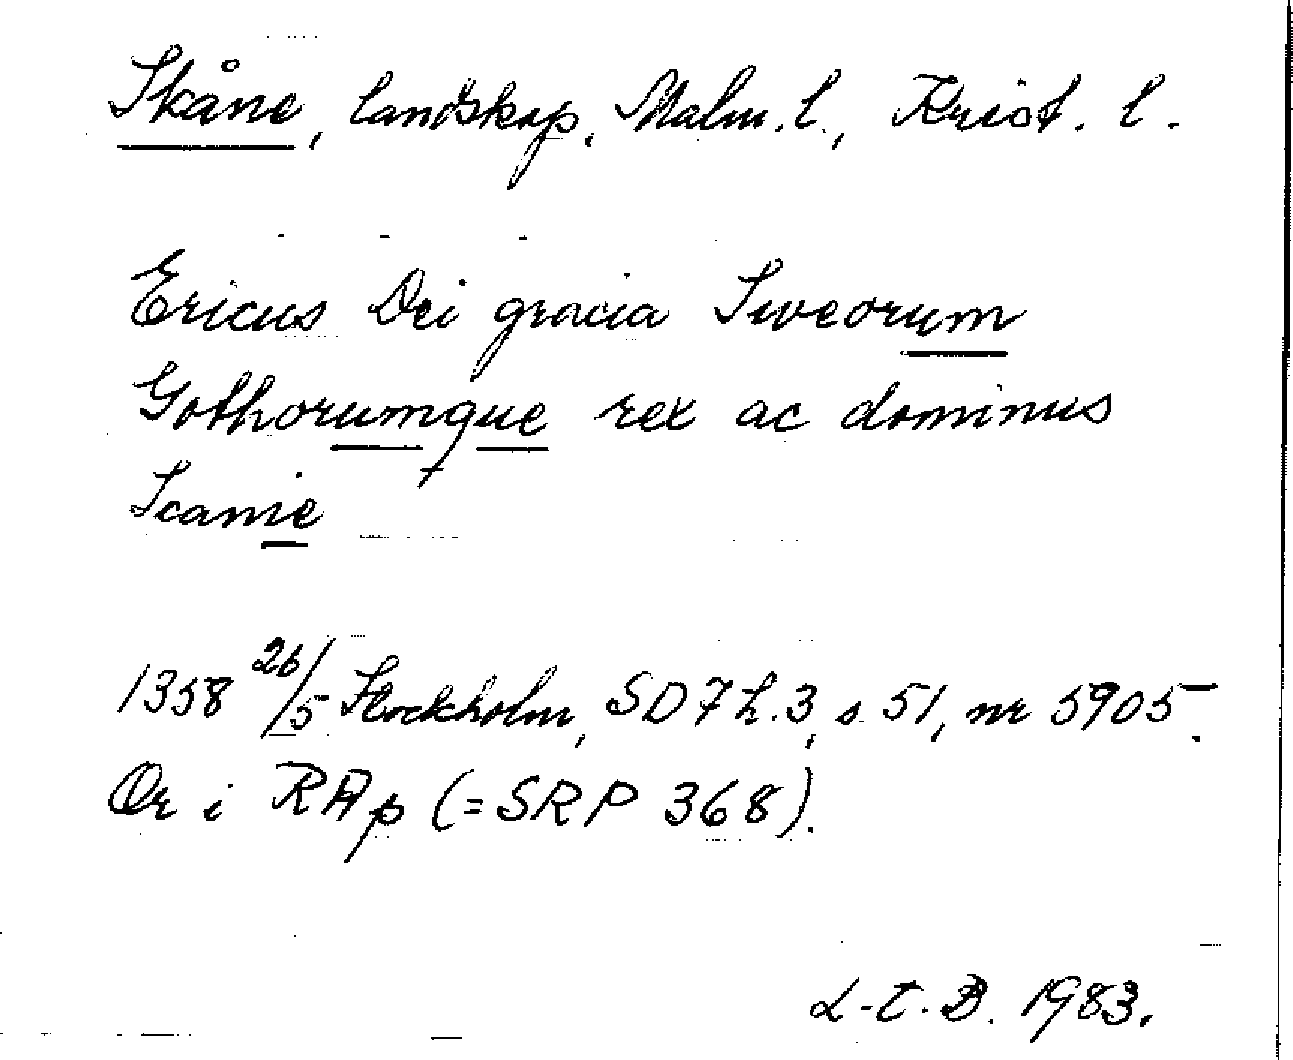 Skåne, landskap, Malm. l., Krist. l.
Ericus Dei gracia Sweorum
Gothorumque rex ac dominus
Scanie
1358 26/5 Stockholm, SD 7 h. 3, s 51, nr 5905.
Or i RAp (= SRP 368).
L-E. B. 1983.